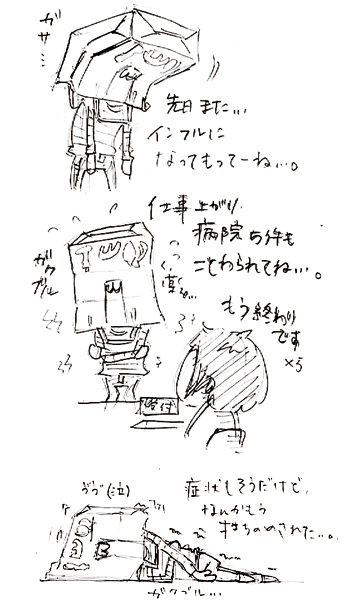 ガサミ
先日 また…
インフルに
なってもってーね…。
仕事上がり、
病院5件も
ことわられてね…。
ガクブル
くっ
薬を…
もう終わり
です
×5
受付
ゔゔ(泣)
症状もそうだけど、
なんかもう
打ちのめされた…。
ガクブル…